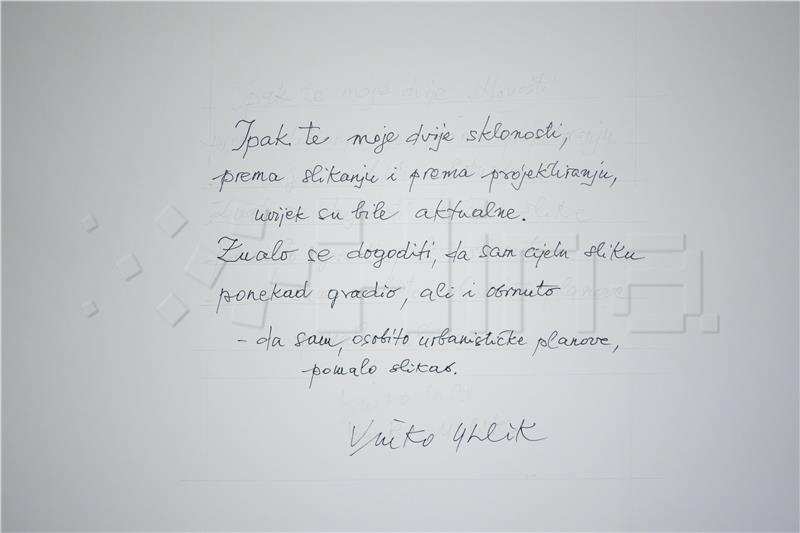 Ipak te moje dvije sklonosti,
prema slikanju i prema projektiranju,
uvijek su bile aktualne.
Znalo se dogoditi, da sam cijelu sliku
ponekad gradio, ali i obrnuto
- da sam, osobito urbanističke planove,
pomalo slikao.
Vjeko Uhlik
hina.